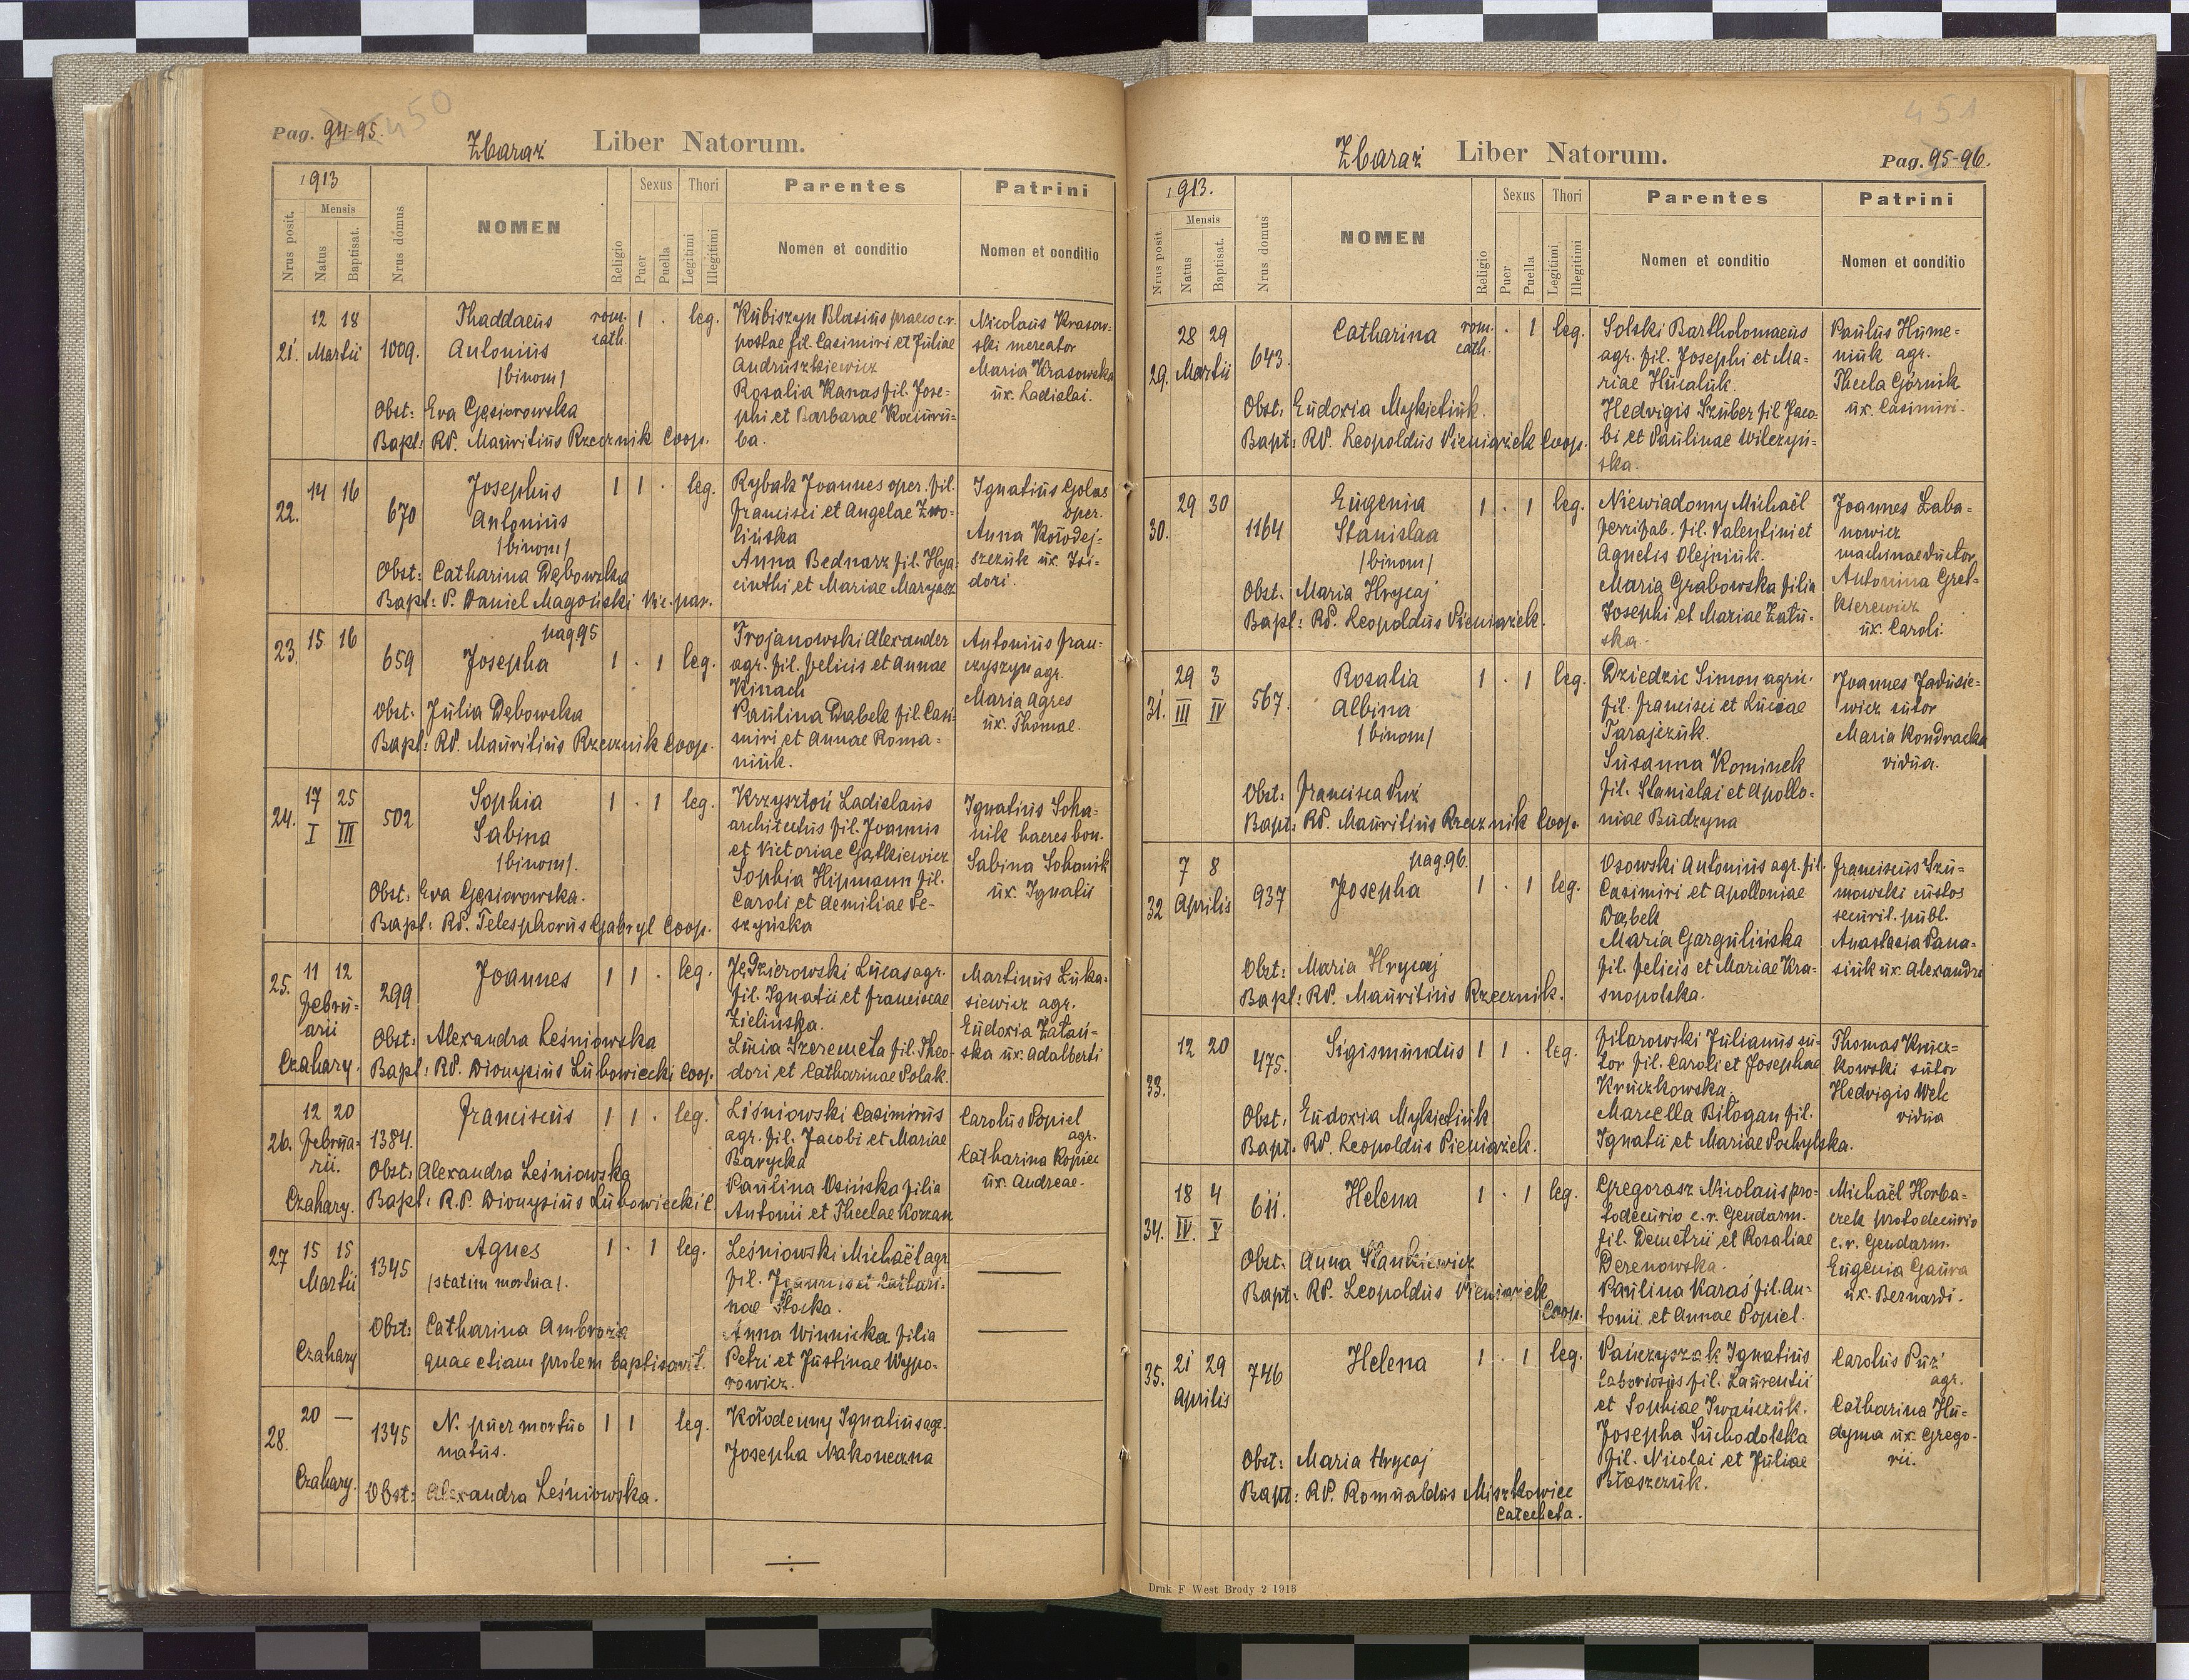 Pag. 94-95. 450
Zbaraż Liber Natorum.
1913
Nrus posit.
Mensis
Natus
Baptisat.
Nrus domus
NOMEN
Religio
Sexus
Puer
Puella
Thori
Legitimi
Illegitimi
Parentes
Nomen et conditio
Patrini
Nomen et conditio
21. 12 18 Martii 1009.
Thaddaeus
Antonius
/binom/
rom. cath. 1 . leg.
Obst: Eva Gąsiorowska
Bapt: RP. Mauritius Rzecznik Coop.
Kubiszyn Blasius praeco c.r.
postae fil. Casimiri et Juliae
Andruszkiewicz
Rosalia Kanas fil. Jose-
phi et Barbarae Kociuru-
ba.
Nicolaus Krasow-
ski mercator
Maria Krasowska
ux. Ladislai.
22. 14 16 670
Josephus
Antonius
/binom/
1 1 . leg.
Obst: Catharina Dębowska
Bapt: P. Daniel Magoński Vic. par.
Rybak Joannes oper. fil.
Francisci et Angelae Zwo-
lińska
Anna Bednarz fil. Hya-
cinthi et Mariae Maryasz
Ignatius Golas
oper.
Anna Kołodej-
szczuk ux. Isi-
dori.
pag 95
23. 15 16 659
Josepha
1 . 1 leg.
Obst: Julia Dębowska
Bapt: RP. Mauritius Rzecznik Coop.
Trojanowski Alexander
agr. fil. Felicis et Annae
Kinach
Paulina Dąbek fil. Casi-
miri et Annae Roma-
niuk.
Antonius Fran-
czyszyn agr.
Maria Agres
ux. Thomae.
24. 17 25 I III 502
Sophia
Sabina
/binom/.
1 . 1 leg.
Obst: Eva Gąsiorowska.
Bapt: RP. Telesphorus Gabryl Coop.
Krzysztoń Ladislaus
architectus fil. Joannis
et Victoriae Gątkiewicz
Sophia Hipmann fil.
Caroli et Aemiliae Pe-
szyńska
Ignatius Soha-
nik haeres bon.
Sabina Sohanik
ux. Ignatii
25. 11 12 Febru-
arii
Czahary. 299
Joannes
1 1 . leg.
Obst: Alexandra Leśniowska
Bapt: RP. Dionysius Lubowiecki Coop.
Jędzierowski Lucas agr.
fil. Ignatii et Franciscae
Zielińska.
Lucia Szeremeta fil. Theo-
dori et Catharinae Polak.
Martinus Luka-
siewicz agr.
Eudoxia Zatań-
ska ux. Adalberti
26. 12 20 Februa-
rii.
Czahary. 1384.
Franciscus
1 1 . leg.
Obst: Alexandra Leśniowska
Bapt: R.P. Dionysius Lubowiecki C.
Liśniowski Casimirus
agr. fil. Jacobi et Mariae
Barycka
Paulina Osińska filia
Antonii et Theclae Korzan
Carolus Popiel
agr.
Catharina Kopiec
ux. Andreae.
27 15 15 Martii
Czahary 1345
Agnes
/statim mortua/.
1 . 1 leg.
Obst: Catharina Ambrozia
quae etiam prolem baptisavit.
Leśniowski Michaël agr
fil. Joannis et Cathari-
nae Płocka.
Anna Winnicka filia
Petri et Justinae Wypo-
rowicz.
28. 20 —
Czahary. 1345
N. puer mortuo
natus.
1 1 leg.
Obst: Alexandra Leśniowska.
Kołodenny Ignatius agr.
Josepha Nakoneczna
451
Zbaraż Liber Natorum. Pag. 95-96.
1913.
Nrus posit.
Mensis
Natus
Baptisat.
Nrus domus
NOMEN
Religio
Sexus
Puer
Puella
Thori
Legitimi
Illegitimi
Parentes
Nomen et conditio
Patrini
Nomen et conditio
29. 28 29 Martii 643.
Catharina
rom. cath. . 1 leg.
Obst: Eudoxia Mykietiuk.
Bapt: RP. Leopoldus Pieniążek Coop.
Solski Bartholomaeus
agr. fil. Josephi et Ma-
riae Hucaluk.
Hedvigis Szuber fil Jaco-
bi et Paulinae Wilczyń-
ska.
Paulus Hume-
niuk agr.
Thecla Górnik
ux. Casimiri.
30. 29 30 1164
Eugenia
Stanislaa
/binom/
1 . 1 leg.
Obst: Maria Hrycaj
Bapt: RP. Leopoldus Pieniążek.
Niewiadomy Michaël
ferrifab. fil. Valentini et
Agnetis Olejniuk.
Maria Grabowska filia
Josephi et Mariae Zału-
ska.
Joannes Laba-
nowicz
machinae ductor
Antonina Gret-
kierewicz
ux. Caroli.
31. 29 3 III IV 567.
Rosalia
Albina
/binom/
1 . 1 leg.
Obst: Francisca Puź
Bapt: RP. Mauritius Rzecznik Coop.
Dziedzic Simon agric.
fil. Francisci et Luciae
Tarajczuk.
Susanna Kominek
fil. Stanislai et Apollo-
niae Budzyna
Joannes Jadusie-
wicz sutor
Maria Kondracka
vidua.
pag 96.
32 7 8 Aprilis 937
Josepha
1 . 1 leg.
Obst: Maria Hrycaj
Bapt: RP. Mauritius Rzecznik.
Osowski Antonius agr. fil.
Casimiri et Apolloniae
Dąbek
Maria Gargulińska
fil. Felicis et Mariae Kra-
snopolska.
Franciscus Szu-
mowski custos
securit. publ.
Anastasia Pana-
siuk ux. Alexandri
33. 12 20 475.
Sigismundus
1 1 . leg.
Obst: Eudoxia Mykietiuk
Bapt: RP. Leopoldus Pieniążek.
Filarowski Julianus su-
tor fil. Caroli et Josephae
Kruczkowska.
Marcella Biłogan fil.
Ignatii et Mariae Pochylska.
Thomas Krucz-
kowski sutor
Hedvigis Wek
vidua
34. 18 4 IV. V 611.
Helena
1 . 1 leg.
Obst: Anna Stankiewicz
Bapt: RP. Leopoldus Pieniążek
Coop.
Gregorasz Nicolaus pro-
todecurio c.r. Gendarm.
fil. Demetrii et Rosaliae
Derenowska.
Paulina Karaś fil. An-
tonii et Annae Popiel.
Michaël Horba-
czek protodecurio
c.r. Gendarm.
Eugenia Gaura
ux. Bernardi.
35. 21 29 Aprilis 746
Helena
1 . 1 leg.
Obst: Maria Hrycaj
Bapt: RP. Romualdus Miszkowicz
Catecheta.
Pańczyszak Ignatius
laboriosus fil. Laurentii
et Sophiae Iwańczuk.
Josepha Suchodolska
fil. Nicolai et Juliae
Błaszczuk.
Carolus Puź
agr.
Catharina Hu-
dyma ux. Grego-
rii.
Druk F West Brody 2 1913